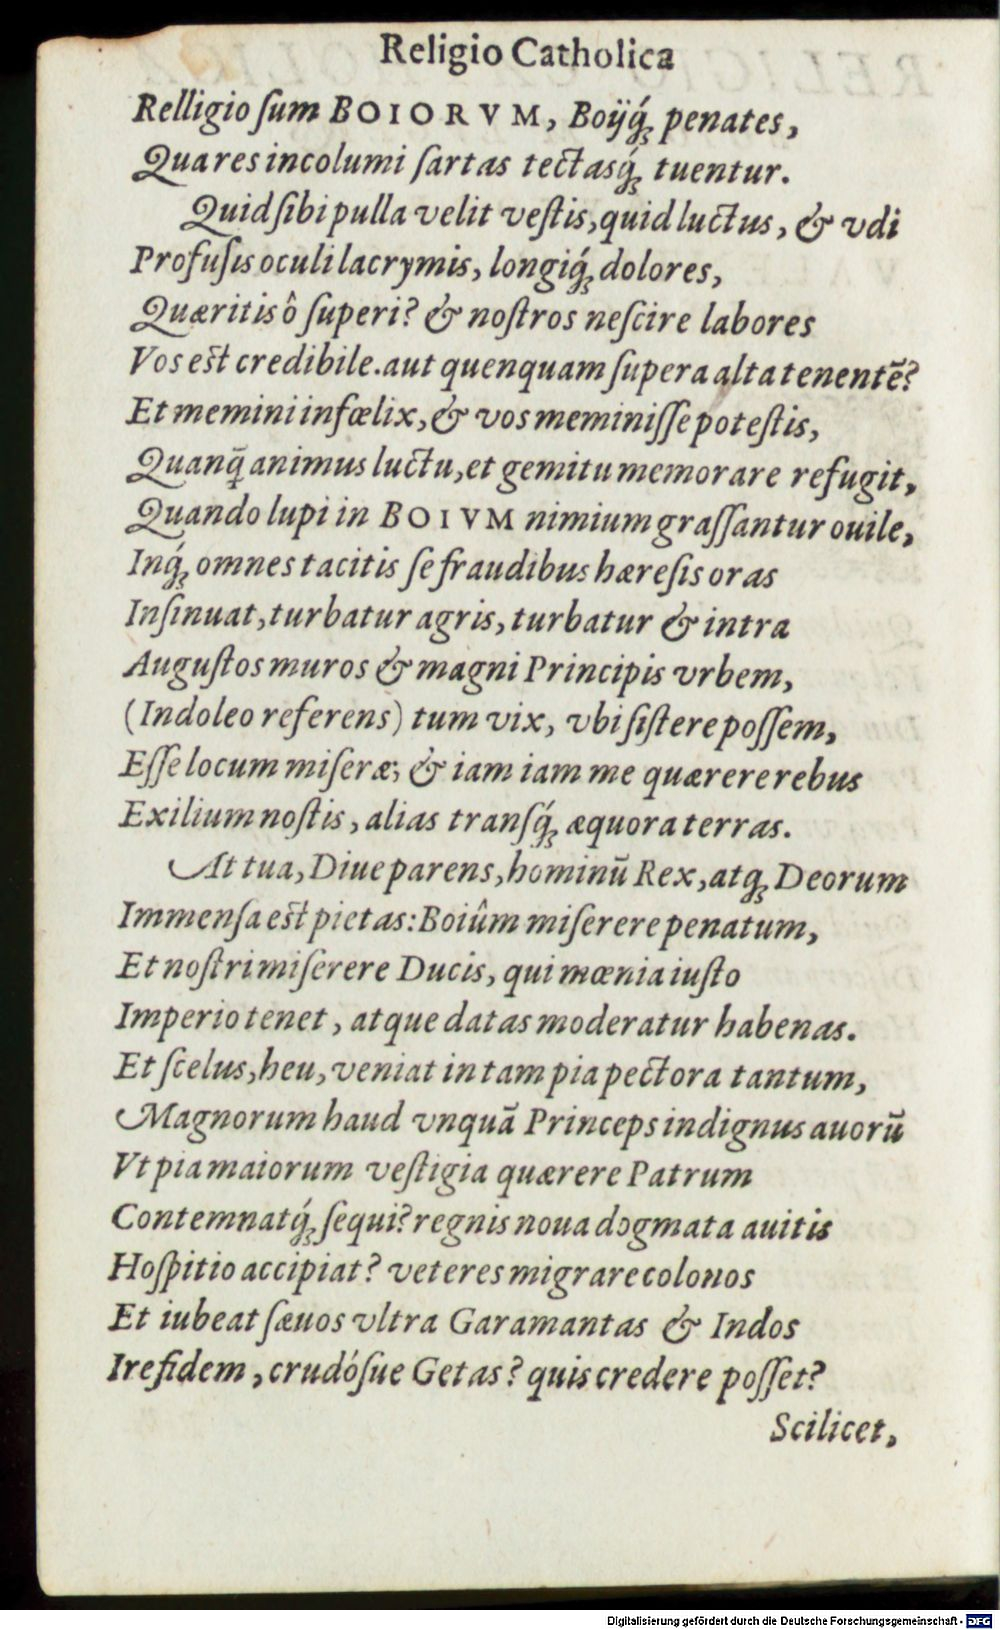 Religio Catholica
Relligio ſum BOIORVM, Boijq́; penates,
Qua res incolumi ſartas tectasq́; tuentur.
Quid ſibi pulla velit veſtis, quid luctus, & vdi
Profuſis oculi lacrymis, longiq́; dolores,
Quæritis ô ſuperi? & noſtros neſcire labores
Vos est credibile. aut quenquam ſupera alta tenentē?
Et memini infœlix, & vos meminiſſe poteſtis,
Quanq̃ animus luctu, et gemitu memorare refugit,
Quando lupi in BOIVM nimium graſſantur ouile,
Inq́; omnes tacitis ſe fraudibus hæreſis oras
Inſinuat, turbatur agris, turbatur & intra
Auguſtos muros & magni Principis vrbem,
(Indoleo referens) tum vix, vbi ſiſtere poſſem,
Eſſe locum miſeræ; & iam iam me quærere rebus
Exilium noſtis, alias tranſq́; æquora terras.
At tua, Diue parens, hominū Rex, atq; Deorum
Immenſa est pietas: Boiûm miſerere penatum,
Et noſtri miſerere Ducis, qui mœnia iuſto
Imperio tenet, atque datas moderatur habenas.
Et ſcelus, heu, veniat in tam pia pectora tantum,
Magnorum haud vnquā Princeps indignus auorū
Vt pia maiorum veſtigia quærere Patrum
Contemnatq́; ſequi? regnis noua dogmata auitis
Hoſpitio accipiat? veteres migrare colonos
Et iubeat ſæuos vltra Garamantas & Indos
Ire fidem, crudóſue Getas? quis credere poſſet?
Scilicet,
Digitalisierung gefördert durch die Deutsche Forschungsgemeinschaft - DFG